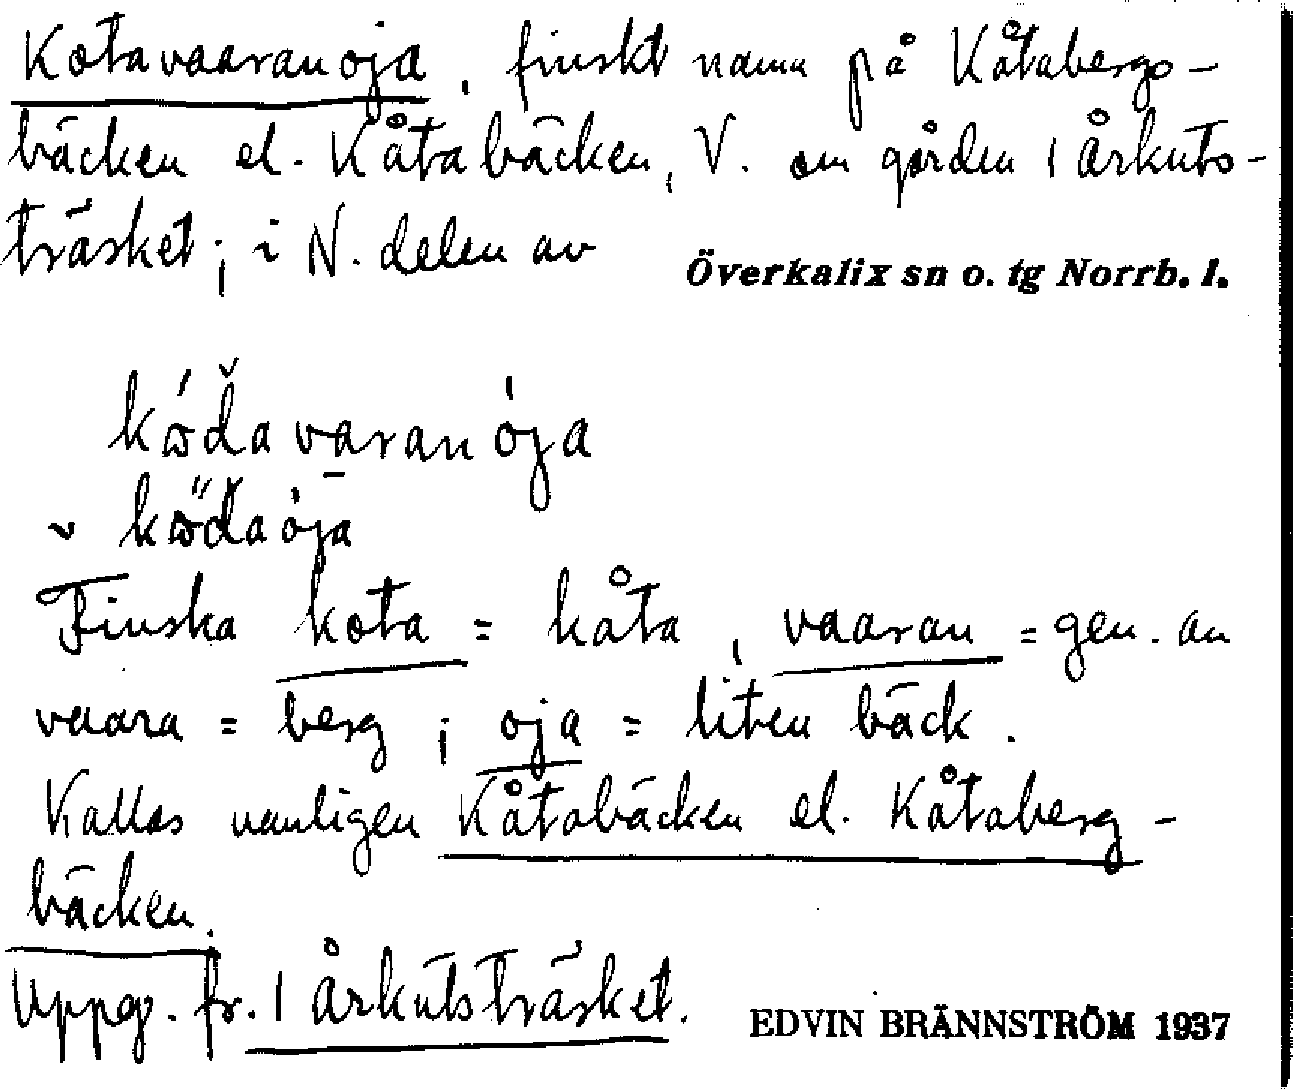 Kotavaaranoja, finskt namn på Kåtabergs-
bäcken el. Kåtabäcken, V. om gården 1 Årkuts-
träsket; i N. delen av Överkalix sn o. tg Norrb. l.
kɷ́d̆avaranója
v kɷ̋d̆aójā
Finska kota = kåta, vaaran = gen. av
vaara = berg; oja = liten bäck.
Kallas vanligen Kåtabäcken el. Kåtaberg-
bäcken.
Uppg. fr. 1 Årkutsträsket. EDVIN BRÄNNSTRÖM 1937